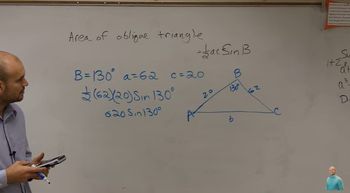 Area of oblique triangle
= ½ ac Sin B
B = 130° a = 62 c = 20
½(62)(20) Sin 130°
620 Sin 130°
B
20 130° 62
A b C